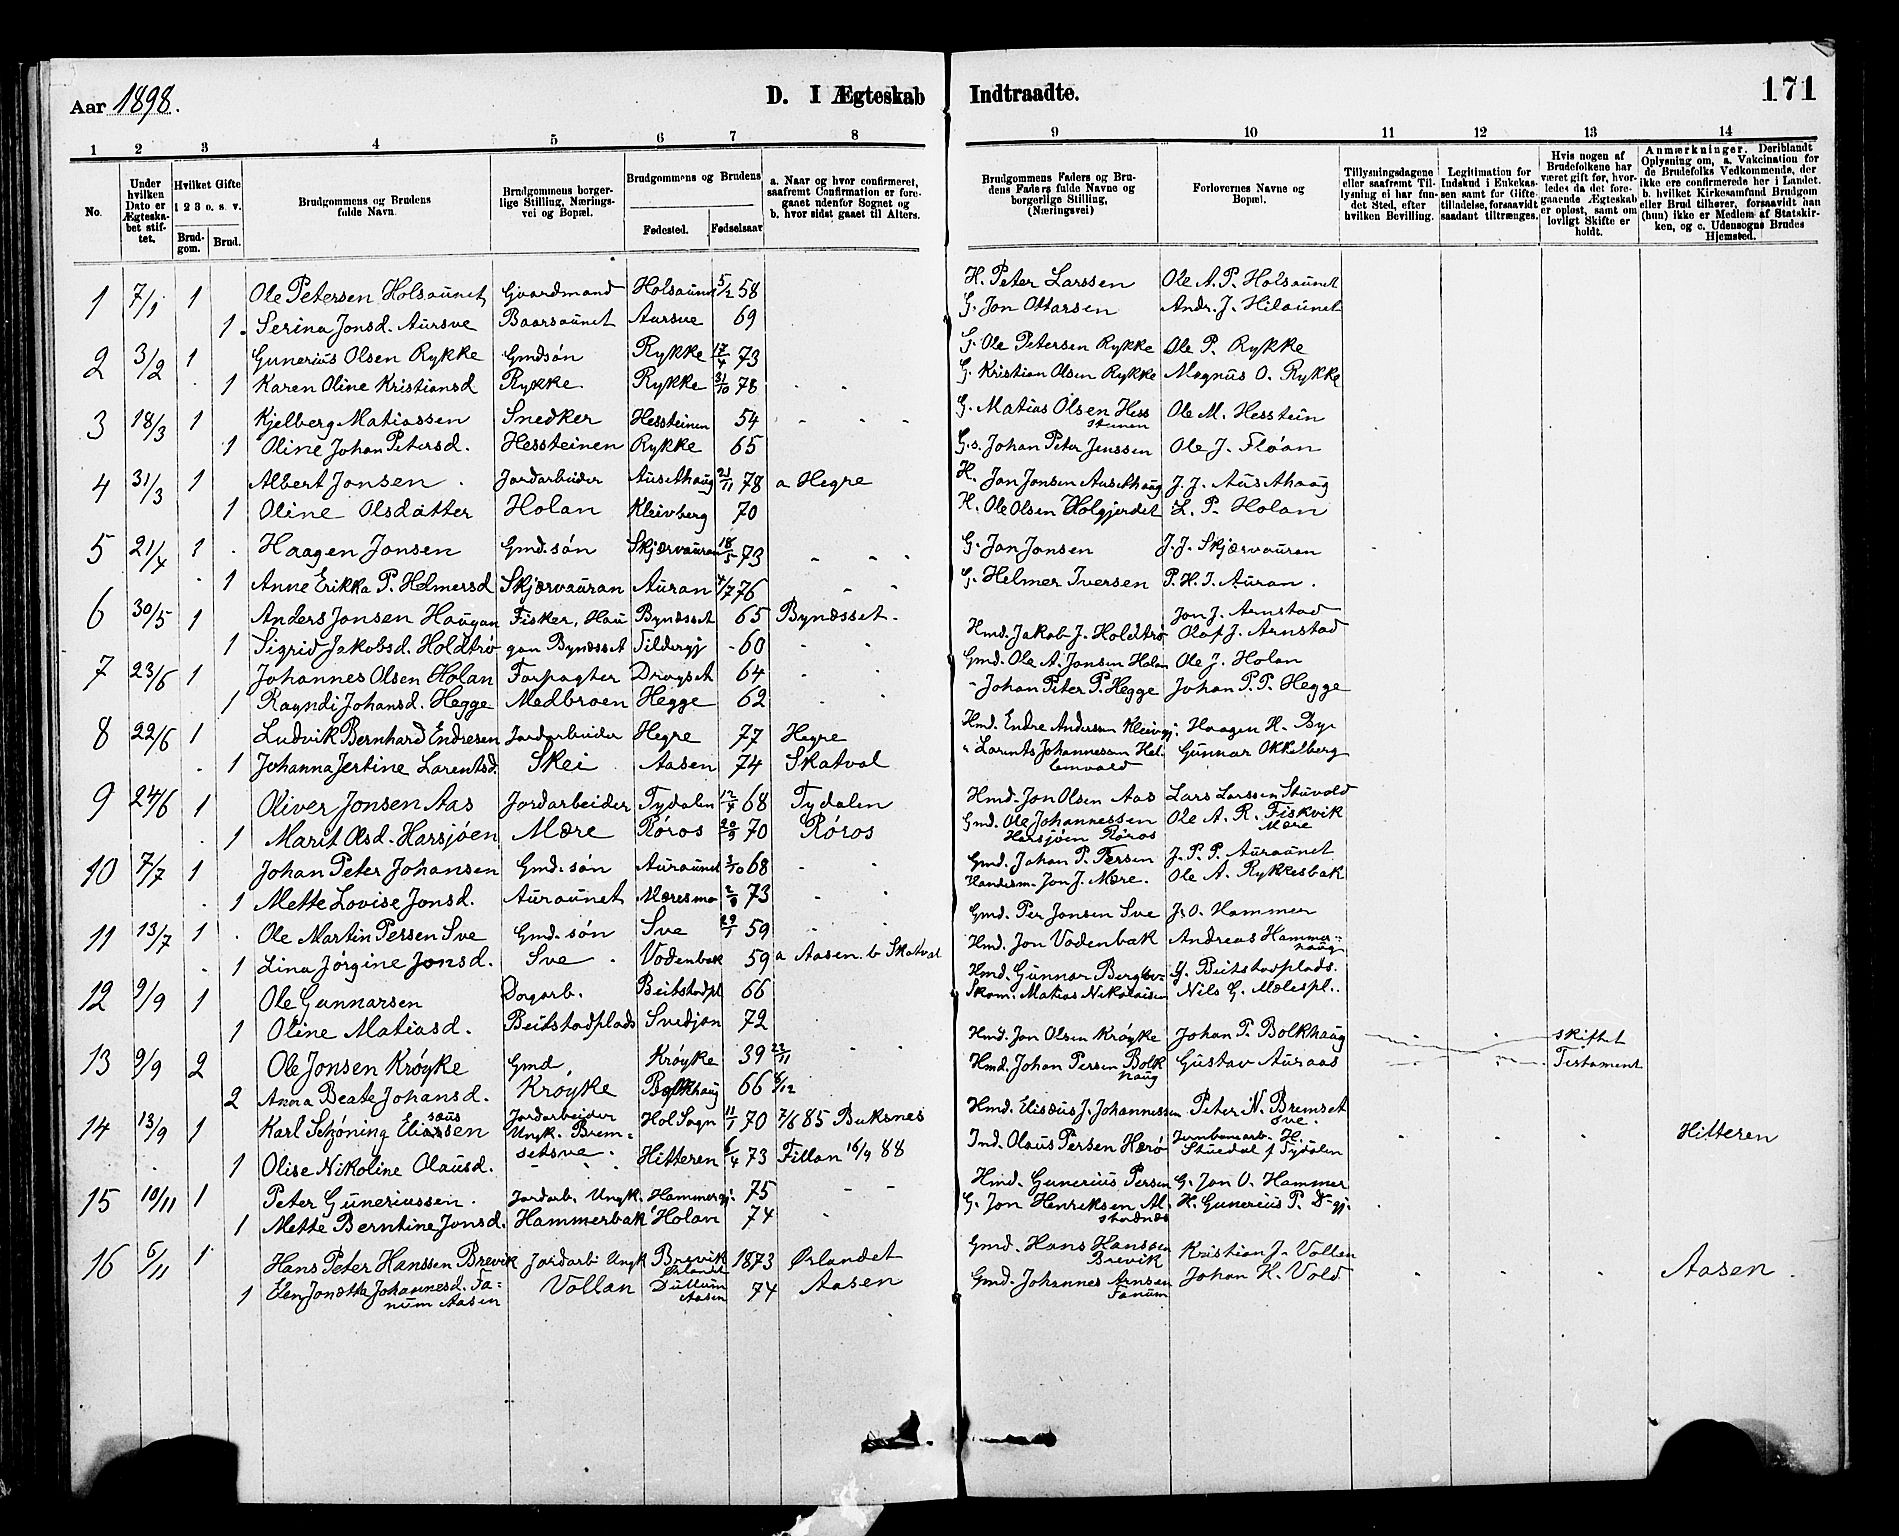 Aar 1898. D. I Ægteskab Indtraadte. 171
1 2 3 4 5 6 7 8 9 10 11 12 13 14
No.
Under hvilken Dato er Ægteskabet stiftet.
Hvilket Gifte 1 2 3 o. s. v.
Brudgom. Brud.
Brudgommens og Brudens fulde Navn.
Brudgommens borgerlige Stilling, Næringsvei og Bopæl.
Brudgommens og Brudens
Fødested. Fødselsaar
a. Naar og hvor confirmeret, saafremt Confirmation er foregaaet udenfor Sognet og b. hvor sidst gaaet til Alters.
Brudgommens Faders og Brudens Faders fulde Navne og borgerlige Stilling, (Næringsvei)
Forlovernes Navne og Bopæl.
Tillysningsdagene eller saafremt Tillysning ei har fundet Sted, efter hvilken Bevilling.
Legitimation for Indskud i Enkekassen samt for Giftetilladelse, forsaavidt saadant tiltrænges.
Hvis nogen af Brudefolkene har været gift før, hvorledes da det foregaaende Ægteskab er opløst, samt om lovligt Skifte er holdt.
Anmærkninger. Deriblandt Oplysning om, a. Vakcination for de Brudefolks Vedkommende, der ikke ere confirmerede her i Landet. b. hvilket Kirkesamfund Brudgom eller Brud tilhører, forsaavidt han (hun) ikke er Medlem af Statskirken, og c. Udensogns Brudes Hjemsted.
1 7/1 1 Ole Petersen Holsaunet Gaardmand Holsaunet 5/2 58 H. Peter Larssen Ole A. P. Holsaunet
1. Serina Jonsd. Aursve Baarsaunet Aursve 69 G. Jon Ottarsen Andr. J. Hilaunet
2 3/2 1 Gunerius Olsen Rykke Gmdsøn Rykke 17/4 73 G. Ole Petersen Rykke Ole P. Rykke
1 Karen Oline Kristiansd Rykke Rykke 31/10 78 G. Kristian Olsen Rykke Magnus O. Rykke
3 18/3 1 Kjelberg Matiassen Snedker Hessteinen 54 G. Matias Olsen Hessteinen Ole M. Hesstein
1 Oline Johan Petersd. Hessteinen Rykke 65 G.s. Johan Peter Jenssen Ole J. Fløan
4 31/3 1 Albert Jonsen Jordarbeider Ausethaug 21/11 78 a Hegre H. Jon Jonsen Ausethaug J. J. Austhaug
1 Oline Olsdatter Holan Kleivberg 70 H. Ole Olsen Holgjerdet L. P. Holan
5 21/4 1 Haagen Jonsen Gmd. søn Skjærvauran 18/5 73 G. Jon Jonsen J. J. Skjærvauran
1 Anne Erikka P. Helmersd Skjærvauran Auran 4/7 76 G. Helmer Iversen P. H. I. Auran.
6 30/5 1 Anders Jonsen Haugan Fisker, Hau Bynæsset 65 Bynæsset. Jon J. Arnstad
1 Sigrid Jakobsd. Holdtrø gan Bynæsset Tildergj - 60 Hmd. Jakob J. Holdtrø Olaf J. Arnstad
7 23/6 1 Johannes Olsen Holan Forpagter Drogset 64 Gmd. Ole A. Jonsen Holan Ole J. Holan
1 Rayndi Johansd. Hegge Medbroen Hegge 62 " Johan Peter P. Hegge Johan P. P. Hegge
8 22/6 1 Ludvik Bernhard Endresen Jordarbeider Hegre 77 Hegre Hmd. Endre Anderssen Kleivgj. Haagen H. Bye
1 Johanna Jertine Larentsd. Skei Aasen 74 Skatval " Larents Johannessen Hellemvald Gunnar Okkelberg
9 24/6 1 Oliver Jonsen Aas Jordarbeider Tydalen 12/4 68 Tydalen Hmd. Jon Olsen Aas Lars Larssen Stuvold
1 Marit Olsd. Harsjøen Mære Røros 20/9 70 Røros Gmd. Ole Johannessen Hersjøen Røros Ole A. R. Fiskvik Mære
10 7/7 1 Johan Peter Johansen Gmd. søn Auraunet 3/10 68 Gmd. Johan P. Persen J. P. P. Auraunet
1 Mette Lovise Jonsd. Auraunet Mæresmo 73 Handelsm. Jon J. Mære. Ole A. Rykkesbak
11 13/7 1 Ole Martin Persen Sve Gmd. søn Sve 29/1 59 Gmd. Per Jonsen Sve J. O. Hammer
1 Lina Jørgine Jonsd. Sve Vodenbak 59 a Aasen. b Skatval Hmd. Jon Vodenbak Andreas Hammerhaug
12 9/9 1 Ole Gunnarsen Dagarb. Beitstadpl 66 Hmd. Gunnar G. Beitstadplads.
1 Oline Matiasd. Beitstadplads Svedjan 72 Skom. Matias Nikolaisen Nils G. Mælespl.
13 9/9 2 Ole Jonsen Krøyke Gmd. Krøyke 39 22/11 Hmd. Jon Olsen Krøyke Johan P. Bolkhaug skiftet
2 Anna Beate Johansd. Krøyke Bolkhaug 66 6/12 Hmd. Johan Persen Bolkhaug Gustav Auraas Testament
14 13/9 1 Karl Schøning Eliassen Jordarbeider Ungk. Brem= Hol Sogn 11/1 70 7/6 85 Buksnes Hmd. Elisæus J. Johannessen Peter N. Bremset Sve.
1 Olise Nikoline Olausd. setsve. Hitteren 6/4 73 Fillan 16/9 88 Ind. Olaus Persen Hærø Jernbanearb. H. Stuedal f Tydalen Hitteren
15 10/11 1 Peter Guneriussen. Jordarb. Ungk. Hammergj. 75 Hmd. Gunerius Persen G. Jon O. Hammer
1 Mette Berntine Jonsd. Hammerbak Holan 74 G. Jon Henriksen Alstadnes H. Gunerius P. D=gj.
16 6/11 1 Hans Peter Hanssen Brevik Jordarb. Ungk Brevik Ørlandet 1873 Ørlandet Gmd. Hans Hanssen Brevik Kristian J. Vollan
1 Johannesd. Fanum Aasen Vollan Dullum Aasen 74 Aasen Gmd. Johannes Arnsen Fanum Johan H. Vold Aasen